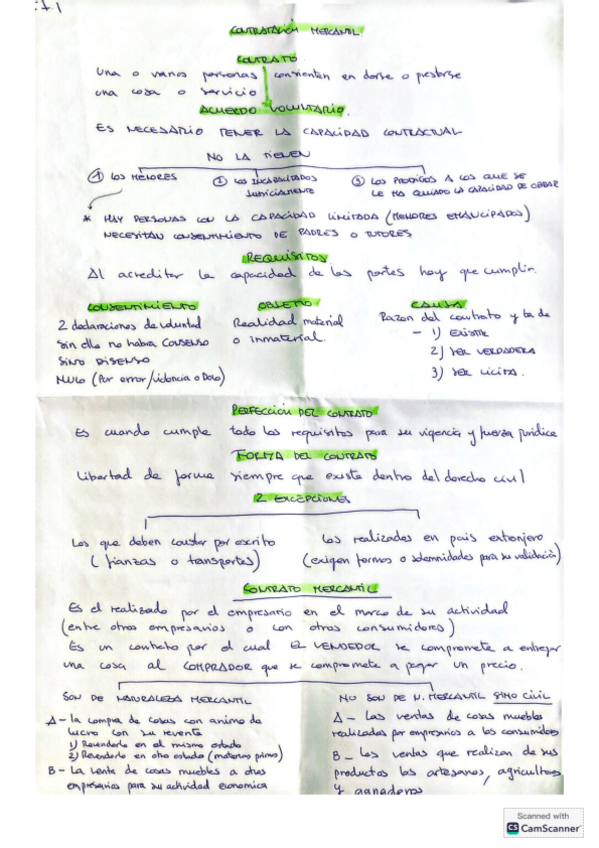 CONTRATACIÓN MERCANTIL
CONTRATO
Una o varias personas consienten en darse o prestarse
una cosa o servicio
ACUERDO VOLUNTARIO.
ES NECESARIO TENER LA CAPACIDAD CONTRACTUAL
NO LA TIENEN
① LOS MENORES
② LOS INCAPACITADOS
JUDICIALMENTE
③ LOS PRODIGOS A LOS QUE SE
LE HA QUITADO LA CAPACIDAD DE OBRAR
* HAY PERSONAS CON LA CAPACIDAD LIMITADA (MENORES EMANCIPADOS)
NECESITAN CONSENTIMIENTO DE PADRES O TUTORES
REQUISITOS
Al acreditar la capacidad de las partes hay que cumplir.
CONSENTIMIENTO
2 declaraciones de voluntad
sin ello no habra CONSENSO
SINO DISENSO
NULO (Por error/violencia o Dolo)
OBJETIO
Realidad material
o inmaterial.
CAUSA
Razon del contrato y ha de
- 1) EXISTIR
2) SER VERDADERA
3) SER LICITA.
PERFECCIÓN DEL CONTRATO
Es cuando cumple todo los requisitos para su vigencia y fuerza juridica
FORMA DEL CONTRATO
Libertad de forma siempre que exista dentro del derecho civil
2 EXCEPCIONES
Los que deben constar por escrito
(fianzas o transportes)
Los realizados en pais extranjero
(exigen formas o solemnidades para su validación)
CONTRATO MERCANTIL
Es el realizado por el empresario en el marco de su actividad
(entre otros empresarios o con otros consumidores)
Es un contrato por el cual EL VENDEDOR se compromete a entregar
una cosa al COMPRADOR que se compromete a pagar un precio.
SON DE NATURALEZA MERCANTIL
A - la compra de cosas con animo de
lucro con su reventa
1) Revenderlo en el mismo estado
2) Revenderlo en otro estado (materias primas)
B - La venta de cosas muebles a otros
empresarios para su actividad economica
NO SON DE N. MERCANTIL SINO CIVIL
A - Las ventas de cosas muebles
realizadas por empresarios a los consumidos
B - Las ventas que realizan de sus
productos los artesanos, agricultores
y ganaderos
Scanned with
CS CamScanner